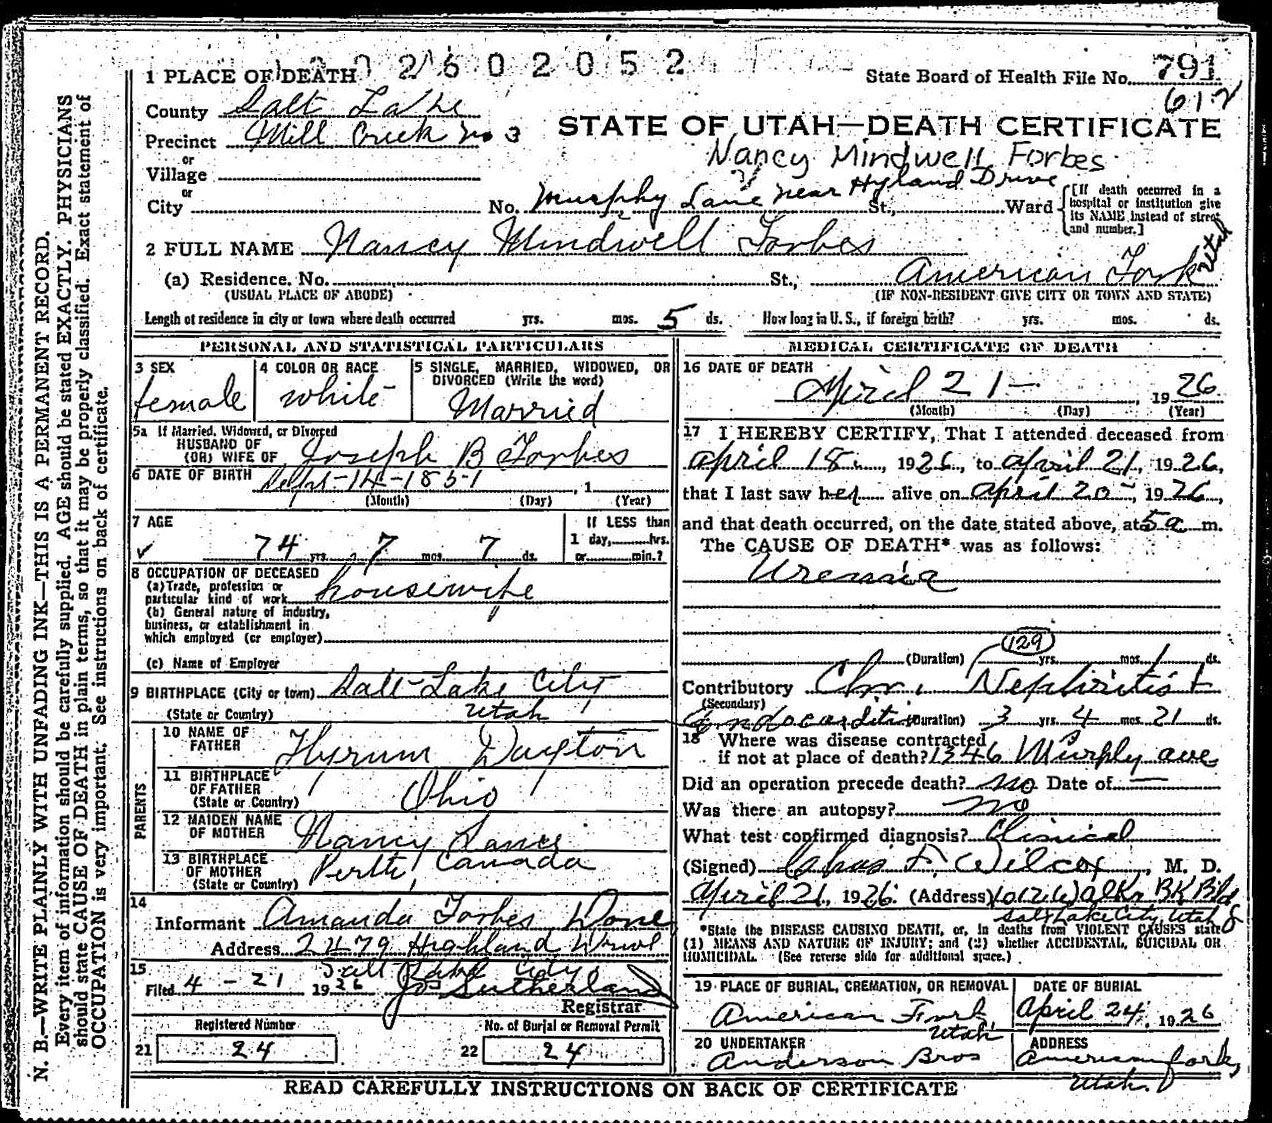 2602052
1 PLACE OF DEATH
State Board of Health File No. 791
612
County Salt Lake
Precinct Mill Creek No. 3
STATE OF UTAH—DEATH CERTIFICATE
Nancy Mindwell Forbes
or
Village
or
City
No. Murphy Lane near Hyland Drive St., Ward
[If death occurred in a hospital or institution give its NAME instead of street and number.]
2 FULL NAME Nancy Mindwell Forbes
(a) Residence. No. St., American Fork Utah
(USUAL PLACE OF ABODE) (IF NON-RESIDENT GIVE CITY OR TOWN AND STATE)
Length of residence in city or town where death occurred yrs. mos. 5 ds. How long in U. S., if foreign birth? yrs. mos. ds.
PERSONAL AND STATISTICAL PARTICULARS
3 SEX female
4 COLOR OR RACE white
5 SINGLE, MARRIED, WIDOWED, OR DIVORCED (Write the word) Married
5a If Married, Widowed, or Divorced
HUSBAND OF
(OR) WIFE OF Joseph B Forbes
6 DATE OF BIRTH Sept-14-1851, 1
(Month) (Day) (Year)
7 AGE
74 yrs. 7 mos. 7 ds.
If LESS than 1 day, hrs. or min.?
8 OCCUPATION OF DECEASED
(a) Trade, profession or particular kind of work housewife
(b) General nature of industry, business, or establishment in which employed (or employer)
(c) Name of Employer
9 BIRTHPLACE (City or town) Salt Lake City
(State or Country) Utah
PARENTS
10 NAME OF FATHER Hyrum Dayton
11 BIRTHPLACE OF FATHER (State or Country) Ohio
12 MAIDEN NAME OF MOTHER Nancy
13 BIRTHPLACE OF MOTHER (State or Country) Perth, Canada
14
Informant Amanda Forbes Done
Address 2479 Highland Drive
Salt Lake City
15
Filed 4-21 1926 Jos Sutherland
Registrar
Registered Number
21 24
No. of Burial or Removal Permit
22 24
MEDICAL CERTIFICATE OF DEATH
16 DATE OF DEATH
April 21-, 1926
(Month) (Day) (Year)
17 I HEREBY CERTIFY, That I attended deceased from
April 18, 1926, to April 21, 1926,
that I last saw her alive on April 20, 1926,
and that death occurred, on the date stated above, at 5a m.
The CAUSE OF DEATH* was as follows:
Uremia
129
(Duration) yrs. mos. 1 ds.
Contributory Chr. Nephritis +
(Secondary)
Endocarditis (Duration) 3 yrs. 4 mos. 21 ds.
18 Where was disease contracted
if not at place of death? 1346 Murphy ave
Did an operation precede death? No Date of
Was there an autopsy? no
What test confirmed diagnosis? Clinical
(Signed) Chas F. Wilcox, M. D.
April 21, 1926. (Address) Walkr BK Bld
Salt Lake City, Utah
*State the DISEASE CAUSING DEATH, or, in deaths from VIOLENT CAUSES state
(1) MEANS AND NATURE OF INJURY; and (2) whether ACCIDENTAL, SUICIDAL OR
HOMICIDAL. (See reverse side for additional space.)
19 PLACE OF BURIAL, CREMATION, OR REMOVAL
American Fork
Utah
DATE OF BURIAL
April 24, 1926
20 UNDERTAKER
Anderson Bros
ADDRESS
American Fork,
Utah.
READ CAREFULLY INSTRUCTIONS ON BACK OF CERTIFICATE
N. B.—WRITE PLAINLY WITH UNFADING INK—THIS IS A PERMANENT RECORD.
Every item of information should be carefully supplied. AGE should be stated EXACTLY. PHYSICIANS
should state CAUSE OF DEATH in plain terms, so that it may be properly classified. Exact statement of
OCCUPATION is very important. See instructions on back of certificate.